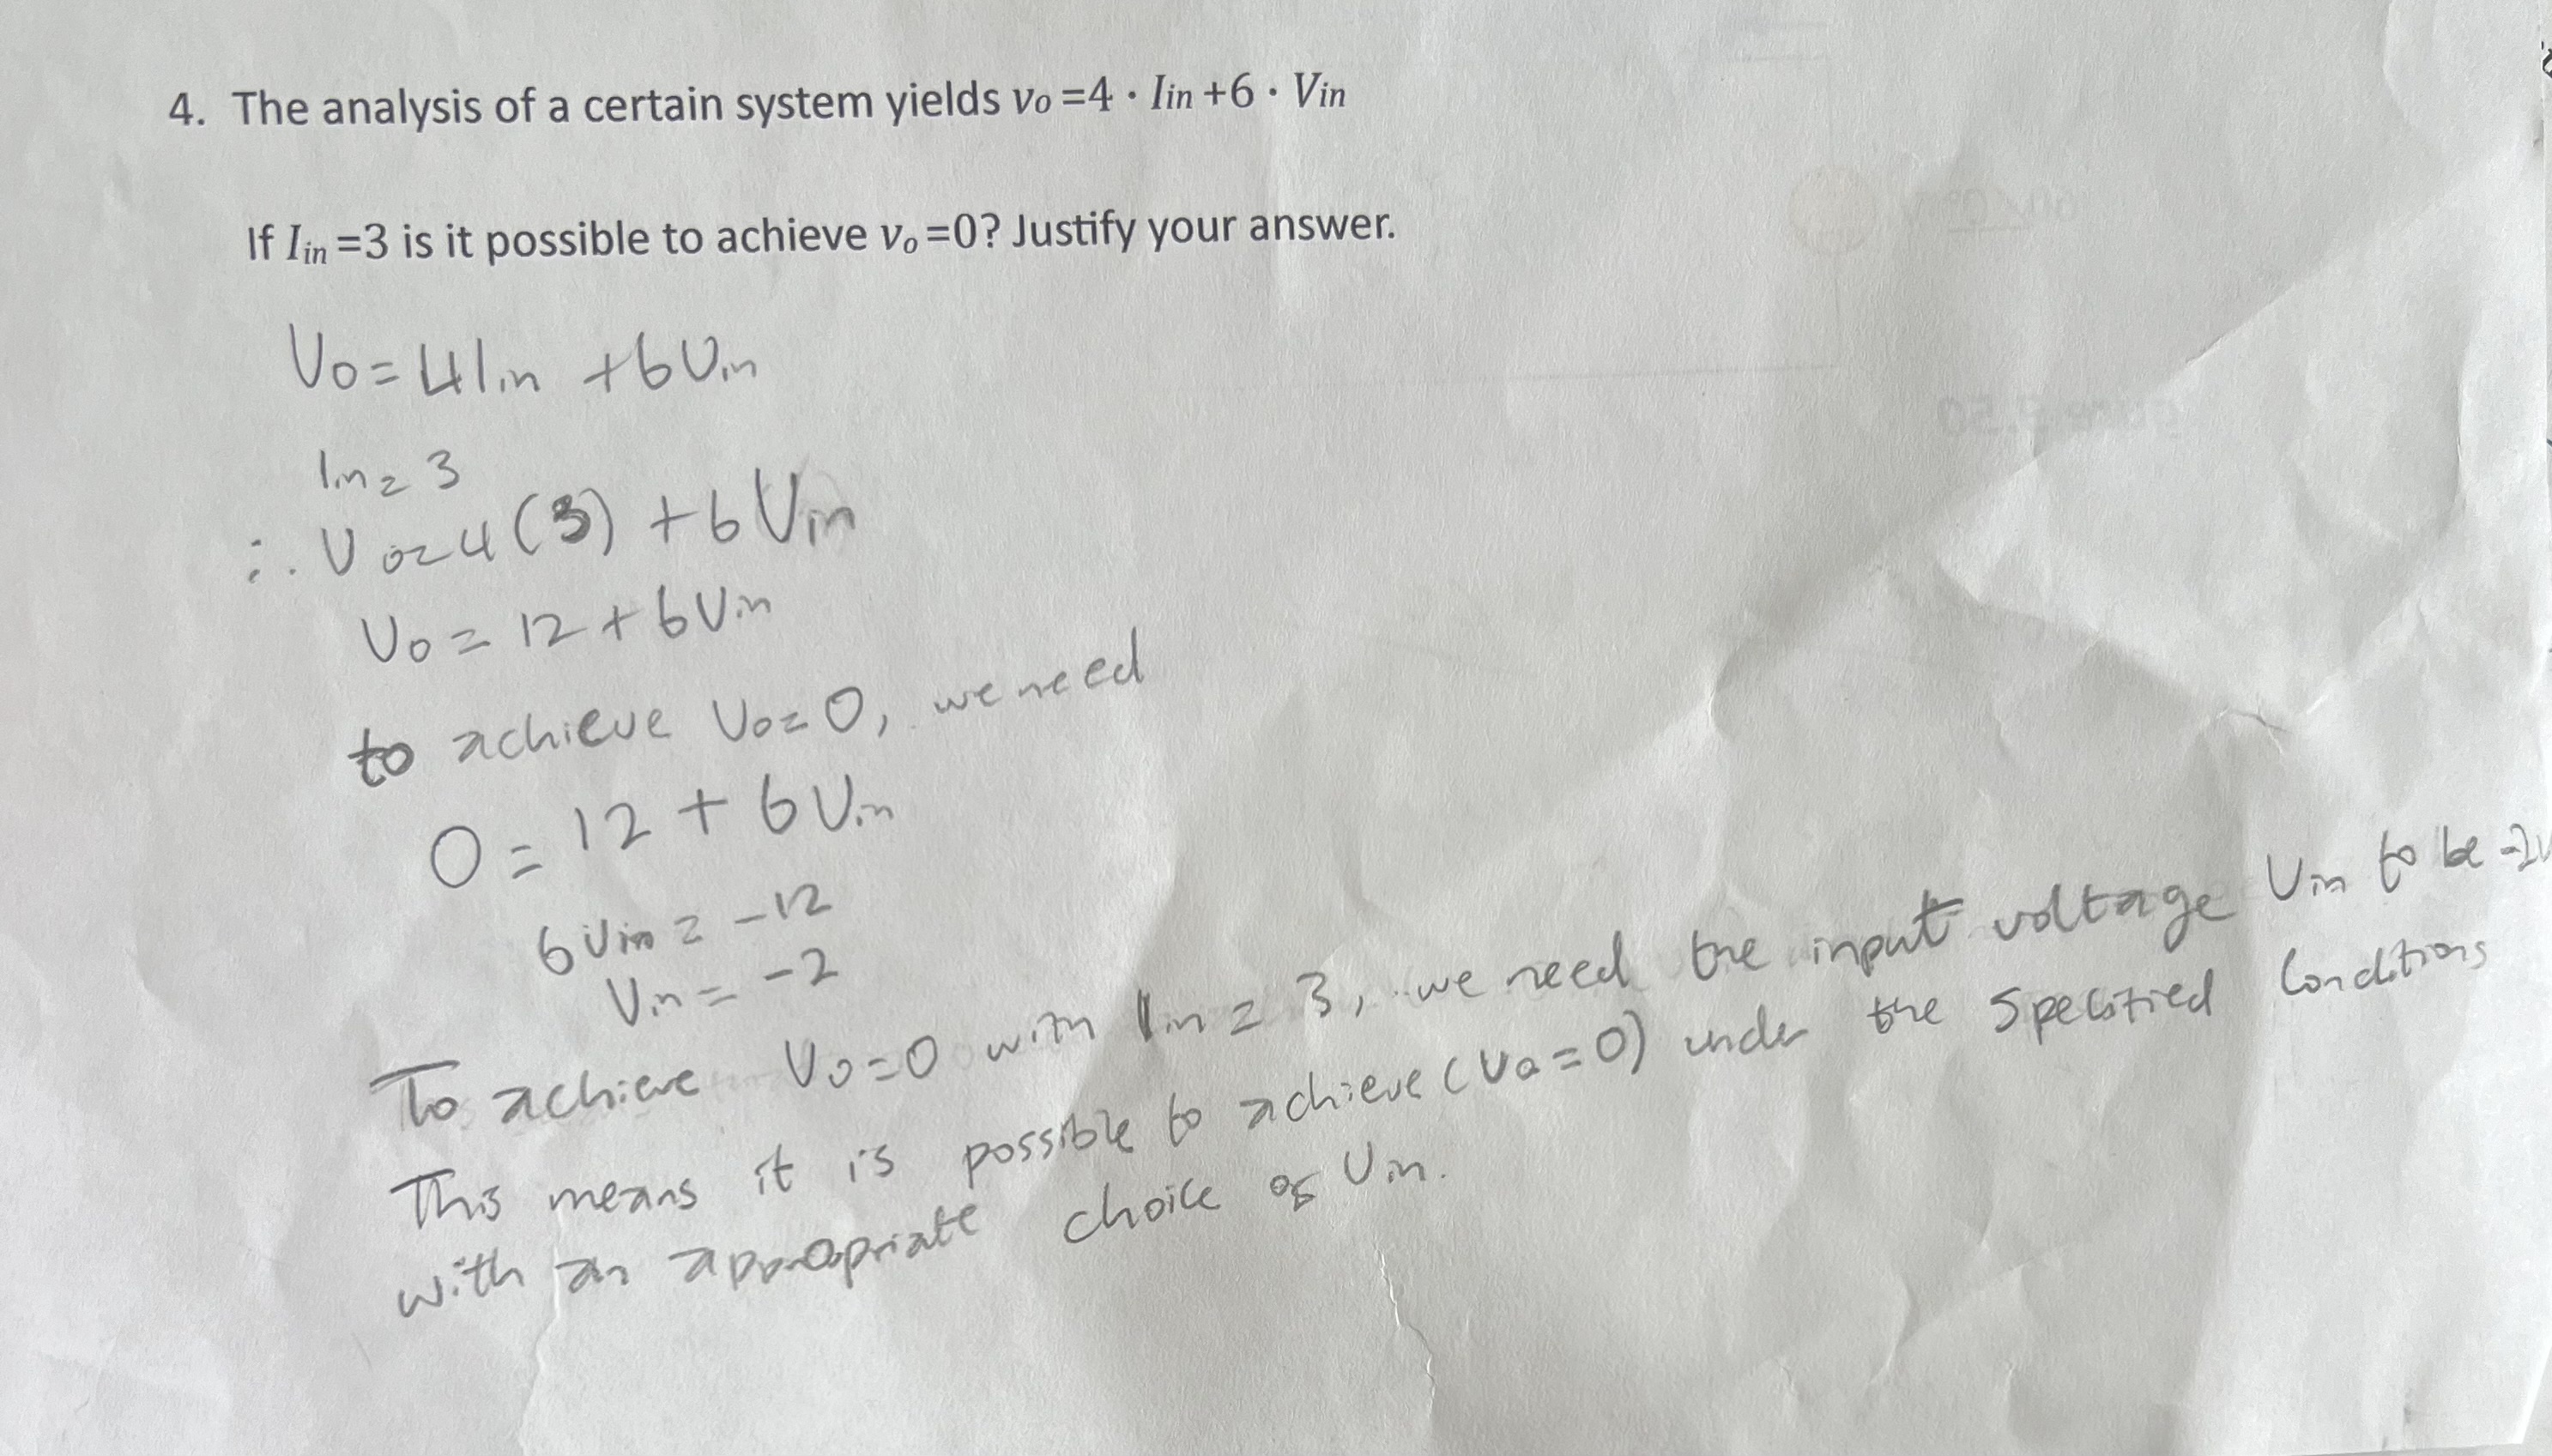 4. The analysis of a certain system yields vo =4 · Iin +6 · Vin
If Iin =3 is it possible to achieve vo =0? Justify your answer.
Vo = 4Iin + 6Vin
Iin = 3
∴ Vo = 4(3) + 6Vin
Vo = 12 + 6Vin
to achieve Vo = 0, we need
0 = 12 + 6Vin
6Vin = -12
Vin = -2
To achieve Vo = 0 with Iin = 3, we need the input voltage Vin to be -2V
This means it is possible to achieve (Vo = 0) under the specified conditions
with an appropriate choice of Vin.